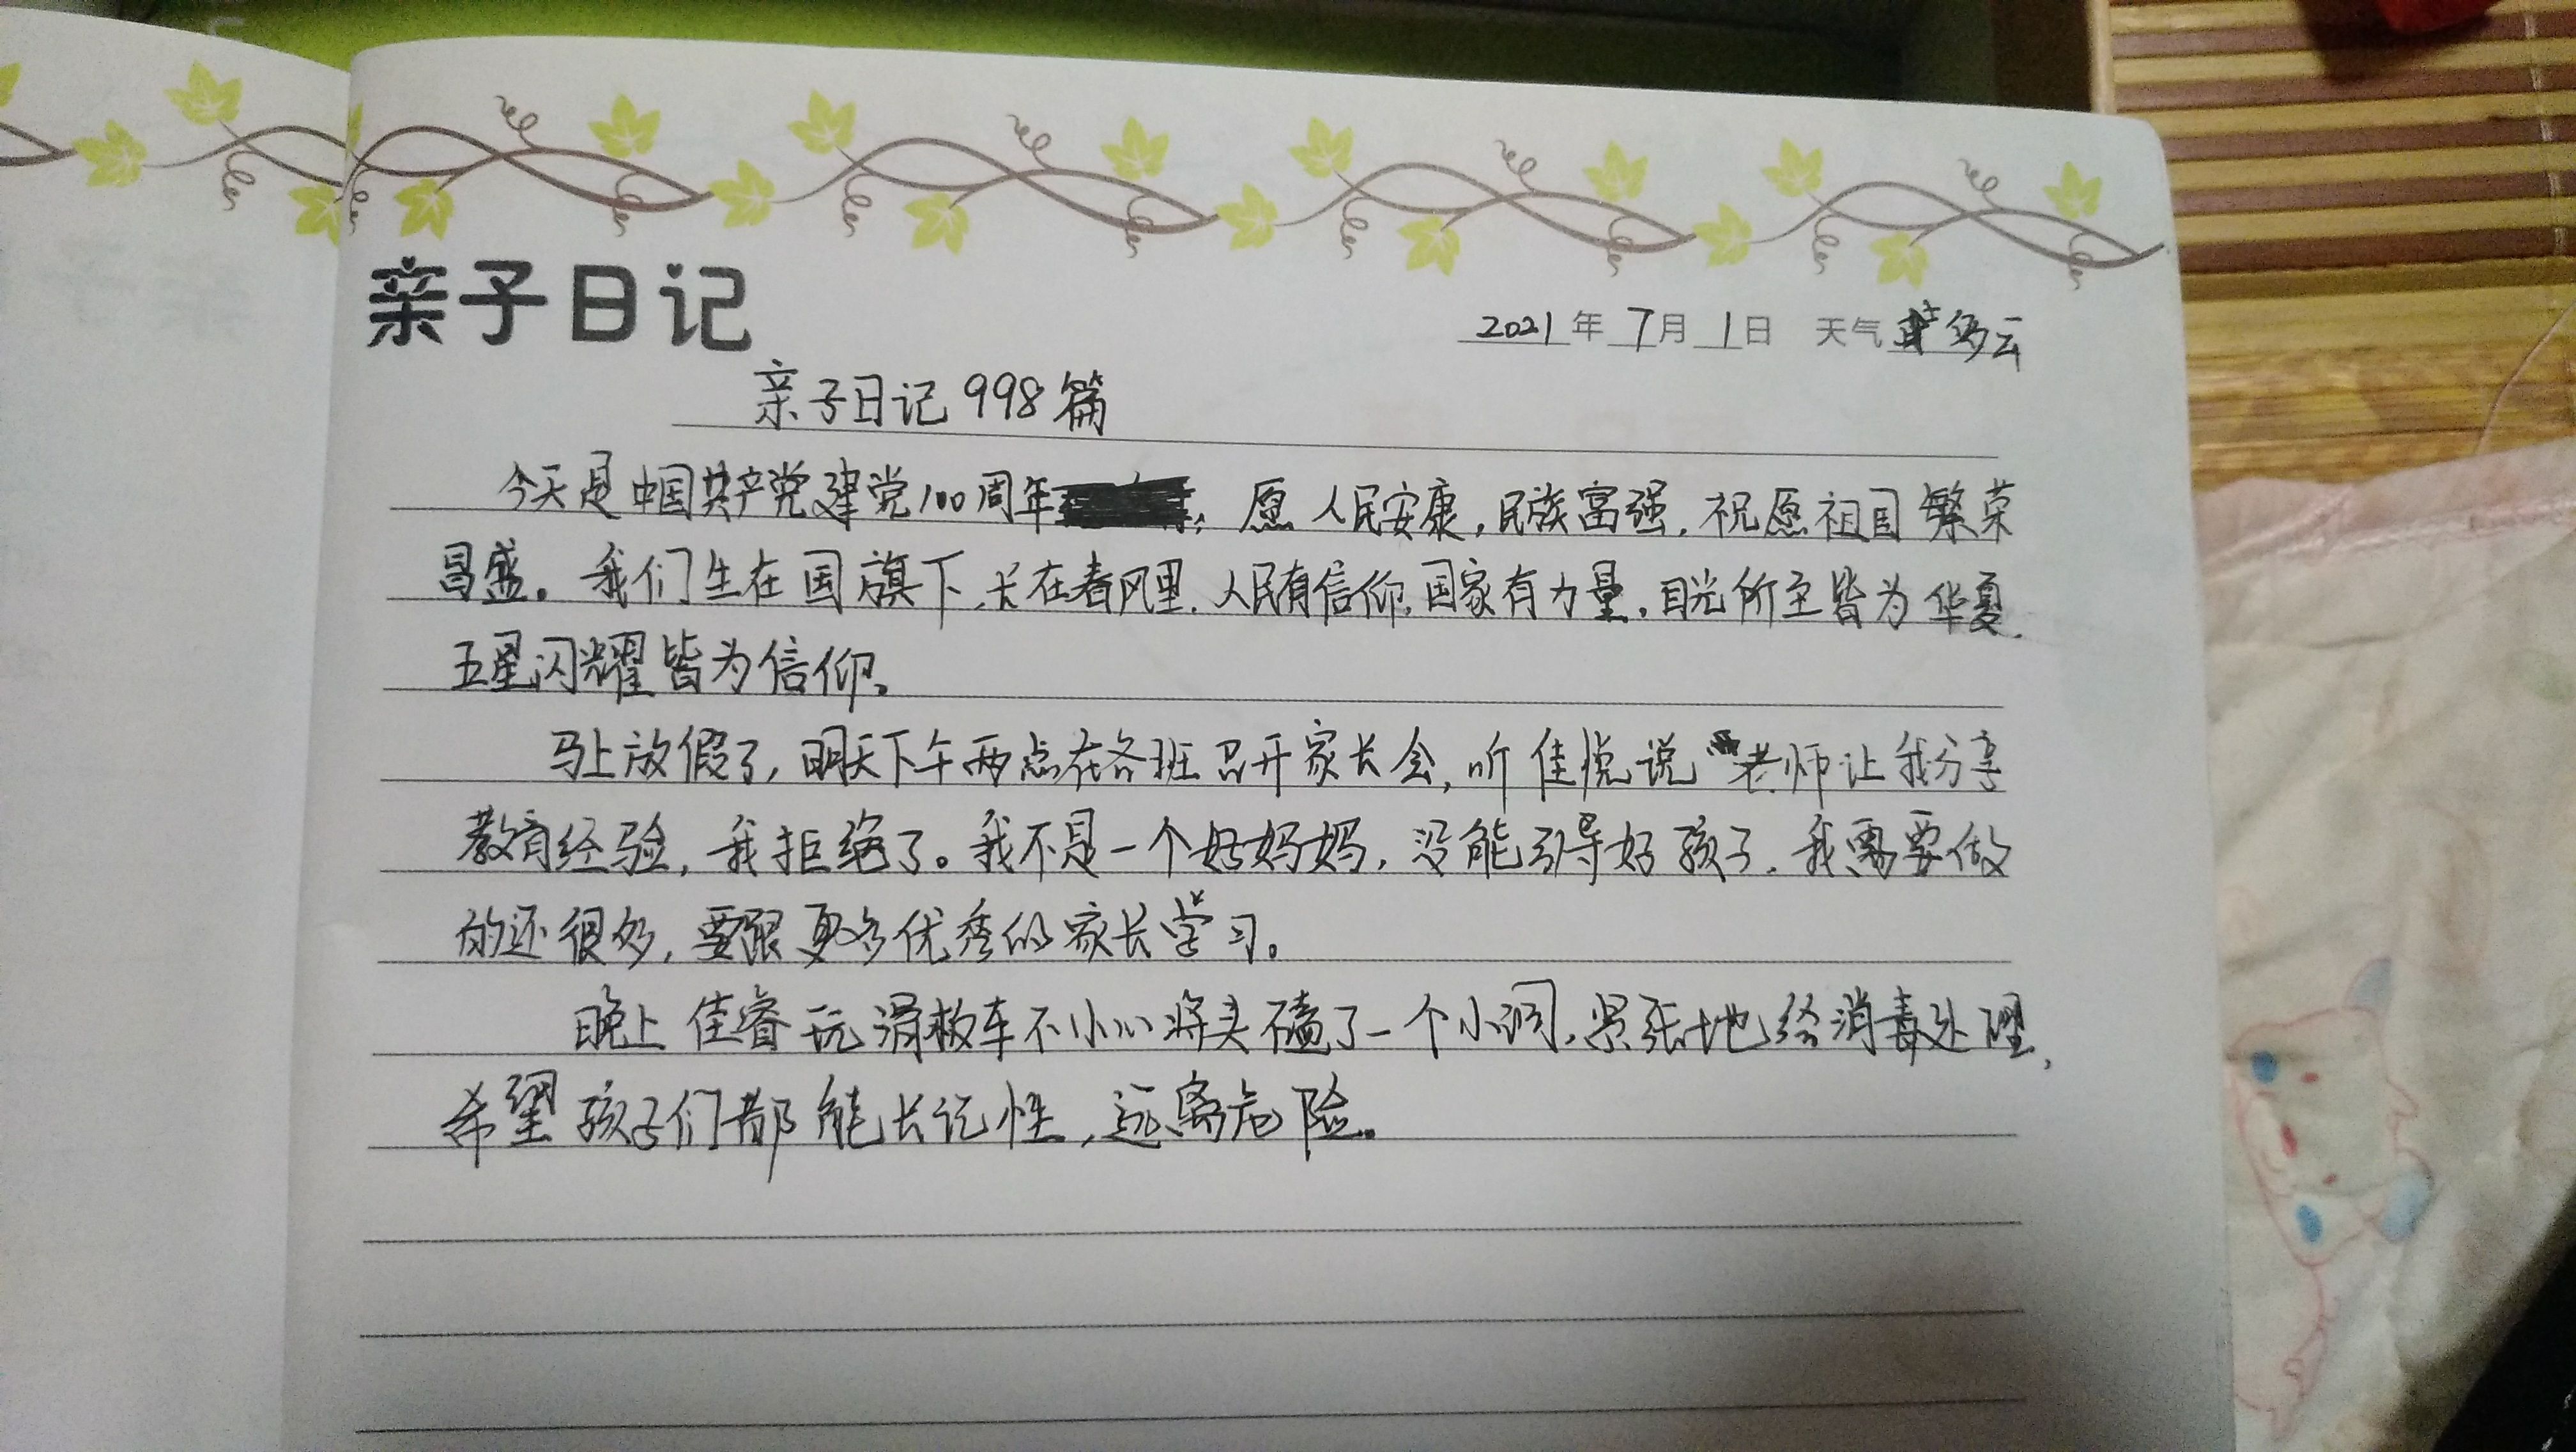 亲子日记
2021年7月1日 天气 多云
亲子日记998篇
今天是中国共产党建党100周年，愿人民安康，民族富强，祝愿祖国繁荣
昌盛。我们生在国旗下，长在春风里，人民有信仰，国家有力量，目光所至皆为华夏，
五星闪耀皆为信仰。
马上放假了，明天下午两点在各班召开家长会，听佳悦说老师让我分享
教育经验，我拒绝了。我不是一个好妈妈，没能引导好孩子，我需要做
的还很多，要跟更多优秀的家长学习。
晚上佳睿玩滑板车不小心将头磕了一个小洞，紧张地给消毒处理，
希望孩子们都能长记性，远离危险。